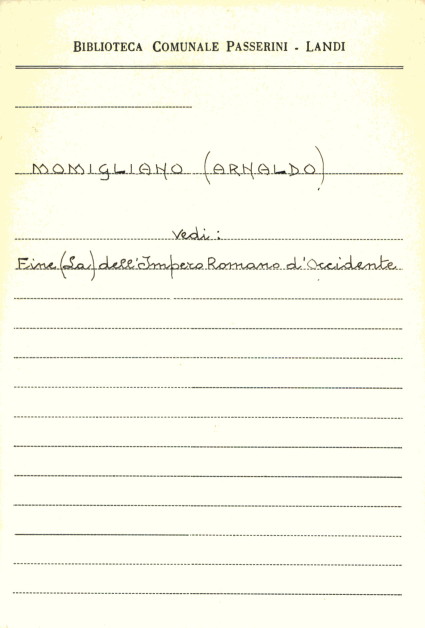 BIBLIOTECA COMUNALE PASSERINI - LANDI
MOMIGLIANO (ARNALDO)
Vedi :
Fine (La) dell'Impero Romano d'Occidente